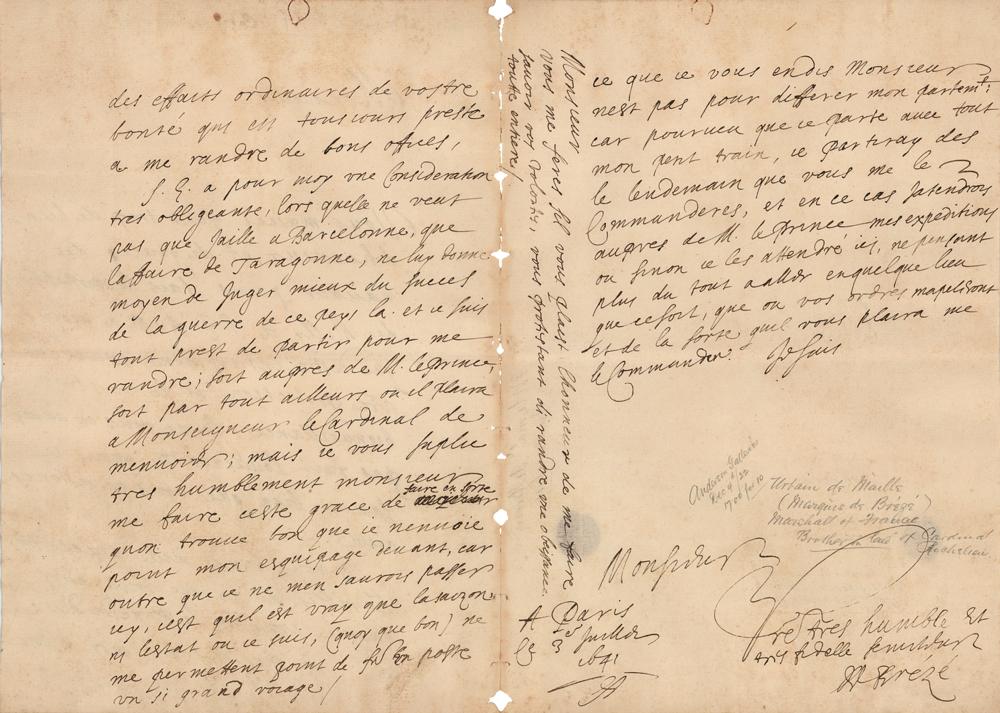 des effaits ordinaires de vostre
bonté qui est tousiours preste
a me randre de bons offices,
S. E. a pour moy vne Consideration
tres obligeante, lors quelle ne veut
pas que jaille a Barcelonne, que
laffaire de Taragonne, ne luy donne
moyen de Juger mieux du succes
de la guerre de ce peys la. et ie suis
tout prest de partir pour me
randre; soit aupres de M. le Prince,
soit par tout ailleurs ou il plaira
a Monseigneur le Cardinal de
menuoier; mais ie vous suplie
tres humblement monsieur
me faire ceste grace de faire en sorte
quon trouue bon que ie nenuoie
point mon esquipage deuant, car
outre que ie ne men saurois passer
icy, cest quil est vray que la saizon
ni lestat ou ie suis, (quoy que bon) ne
me permettent point de en poste
vn si grand voiage /
Monsieur
vous me feres sil vous plaist lhonneur de me faire
sauoir vos volontés, vous protestant di randre une obeissance
toutte entiere /
ce que ie vous endis Monsieur
nest pas pour differer mon partemt;
car pourueu que ie parte auec tout
mon petit train, ie partiray des
le lendemain que vous me le
Commanderes, et en ce cas jatendrois
aupres de M. le Prince mes expeditions
ou sinon ie les attendre ici, ne pensant
plus du tout a aller enquelque lieu
que ce soit, que ou vos ordres mapeleront
et de la sorte quil vous plaira me
le Commander. Je suis
Anderson Galleries
Dec 4 + 5/22
Urbain de Maillé
(Marquis de Brézé)
Marshall of France
Brother in Law of Cardinal
Richelieu.
Monsieur
A Paris
Ce 23 Juillet
1641
Vre tres humble et
tres fidelle seruiteur
Brézé